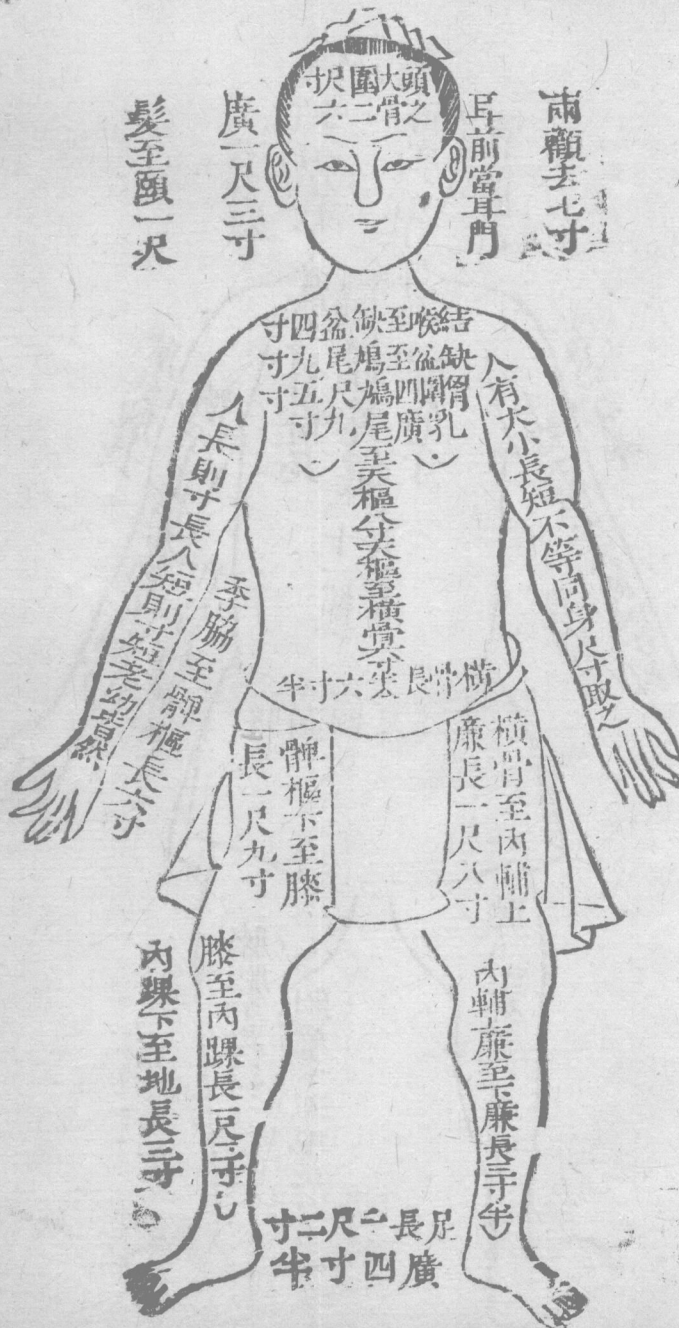 兩顴去七寸
耳前當耳門
頭之
大骨
圍二
尺六
寸
廣一尺三寸
髮至頤一尺
結喉至缺盆四寸
缺盆至鳩尾九寸
胷圍四尺五寸
乳廣九寸
鳩尾至天樞八寸天樞至橫骨六寸半
橫骨長六寸半
人有大小長短不等同身尺寸取之
人長則寸長人短則寸短老幼皆然
季脇至髀樞長六寸
橫骨至內輔上
廉長一尺八寸
髀樞下至膝
長一尺九寸
內輔上廉至下廉長三寸半
膝至內踝長一尺寸
內踝下至地長三寸
足長二尺二寸
廣四寸半